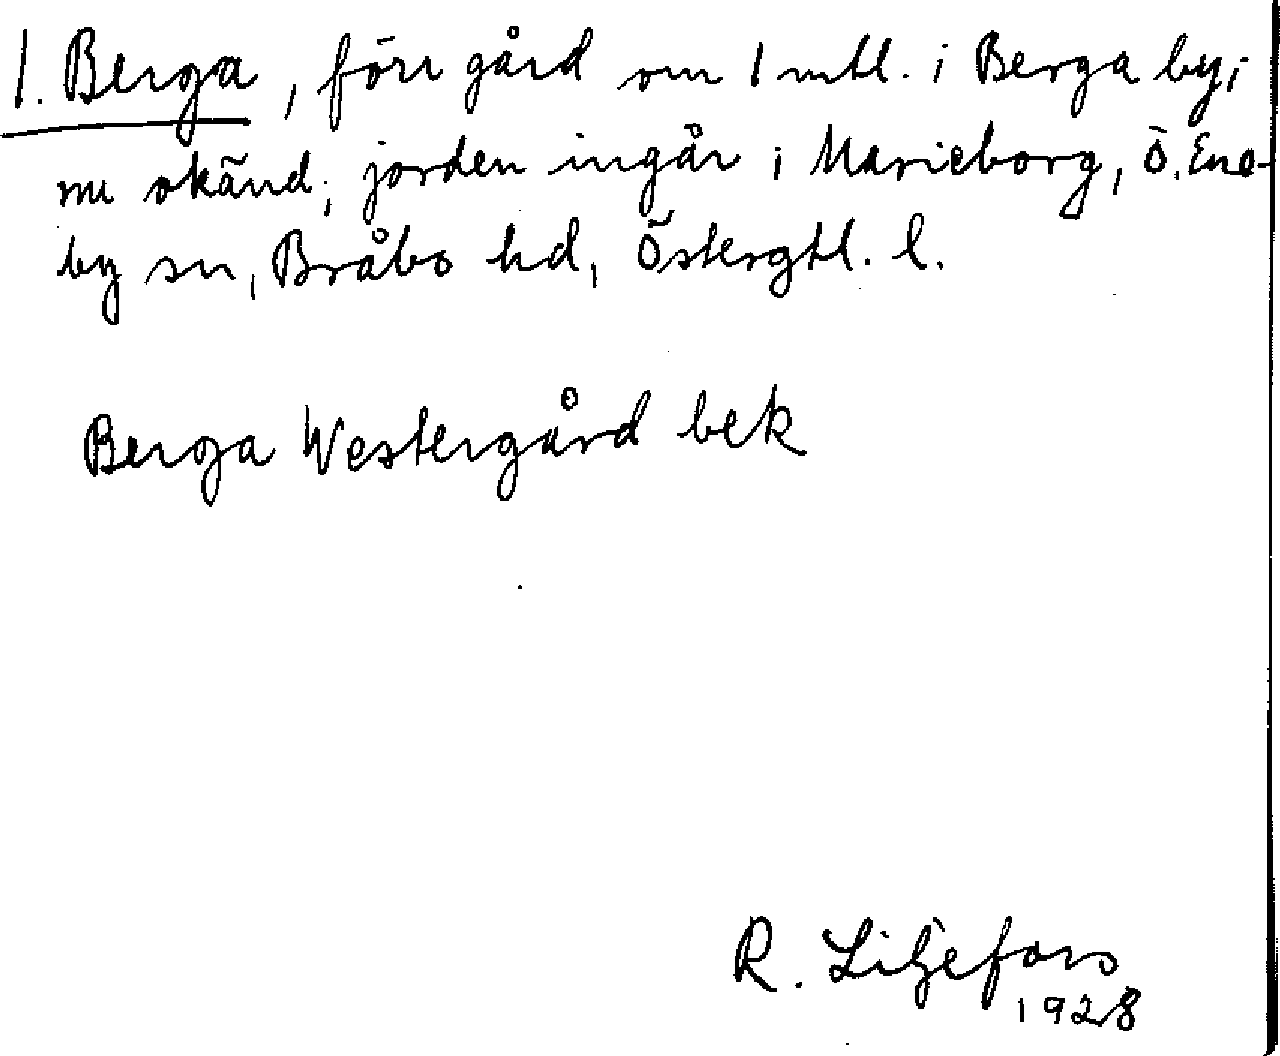 1. Berga, förr gård om 1 mtl. i Berga by;
nu okänd; jorden ingår i Marieborg, Ö. Ene-
by sn, Bråbo hd, Östergtl. l.
Berga Westergård bek
R. Liljefors
1928